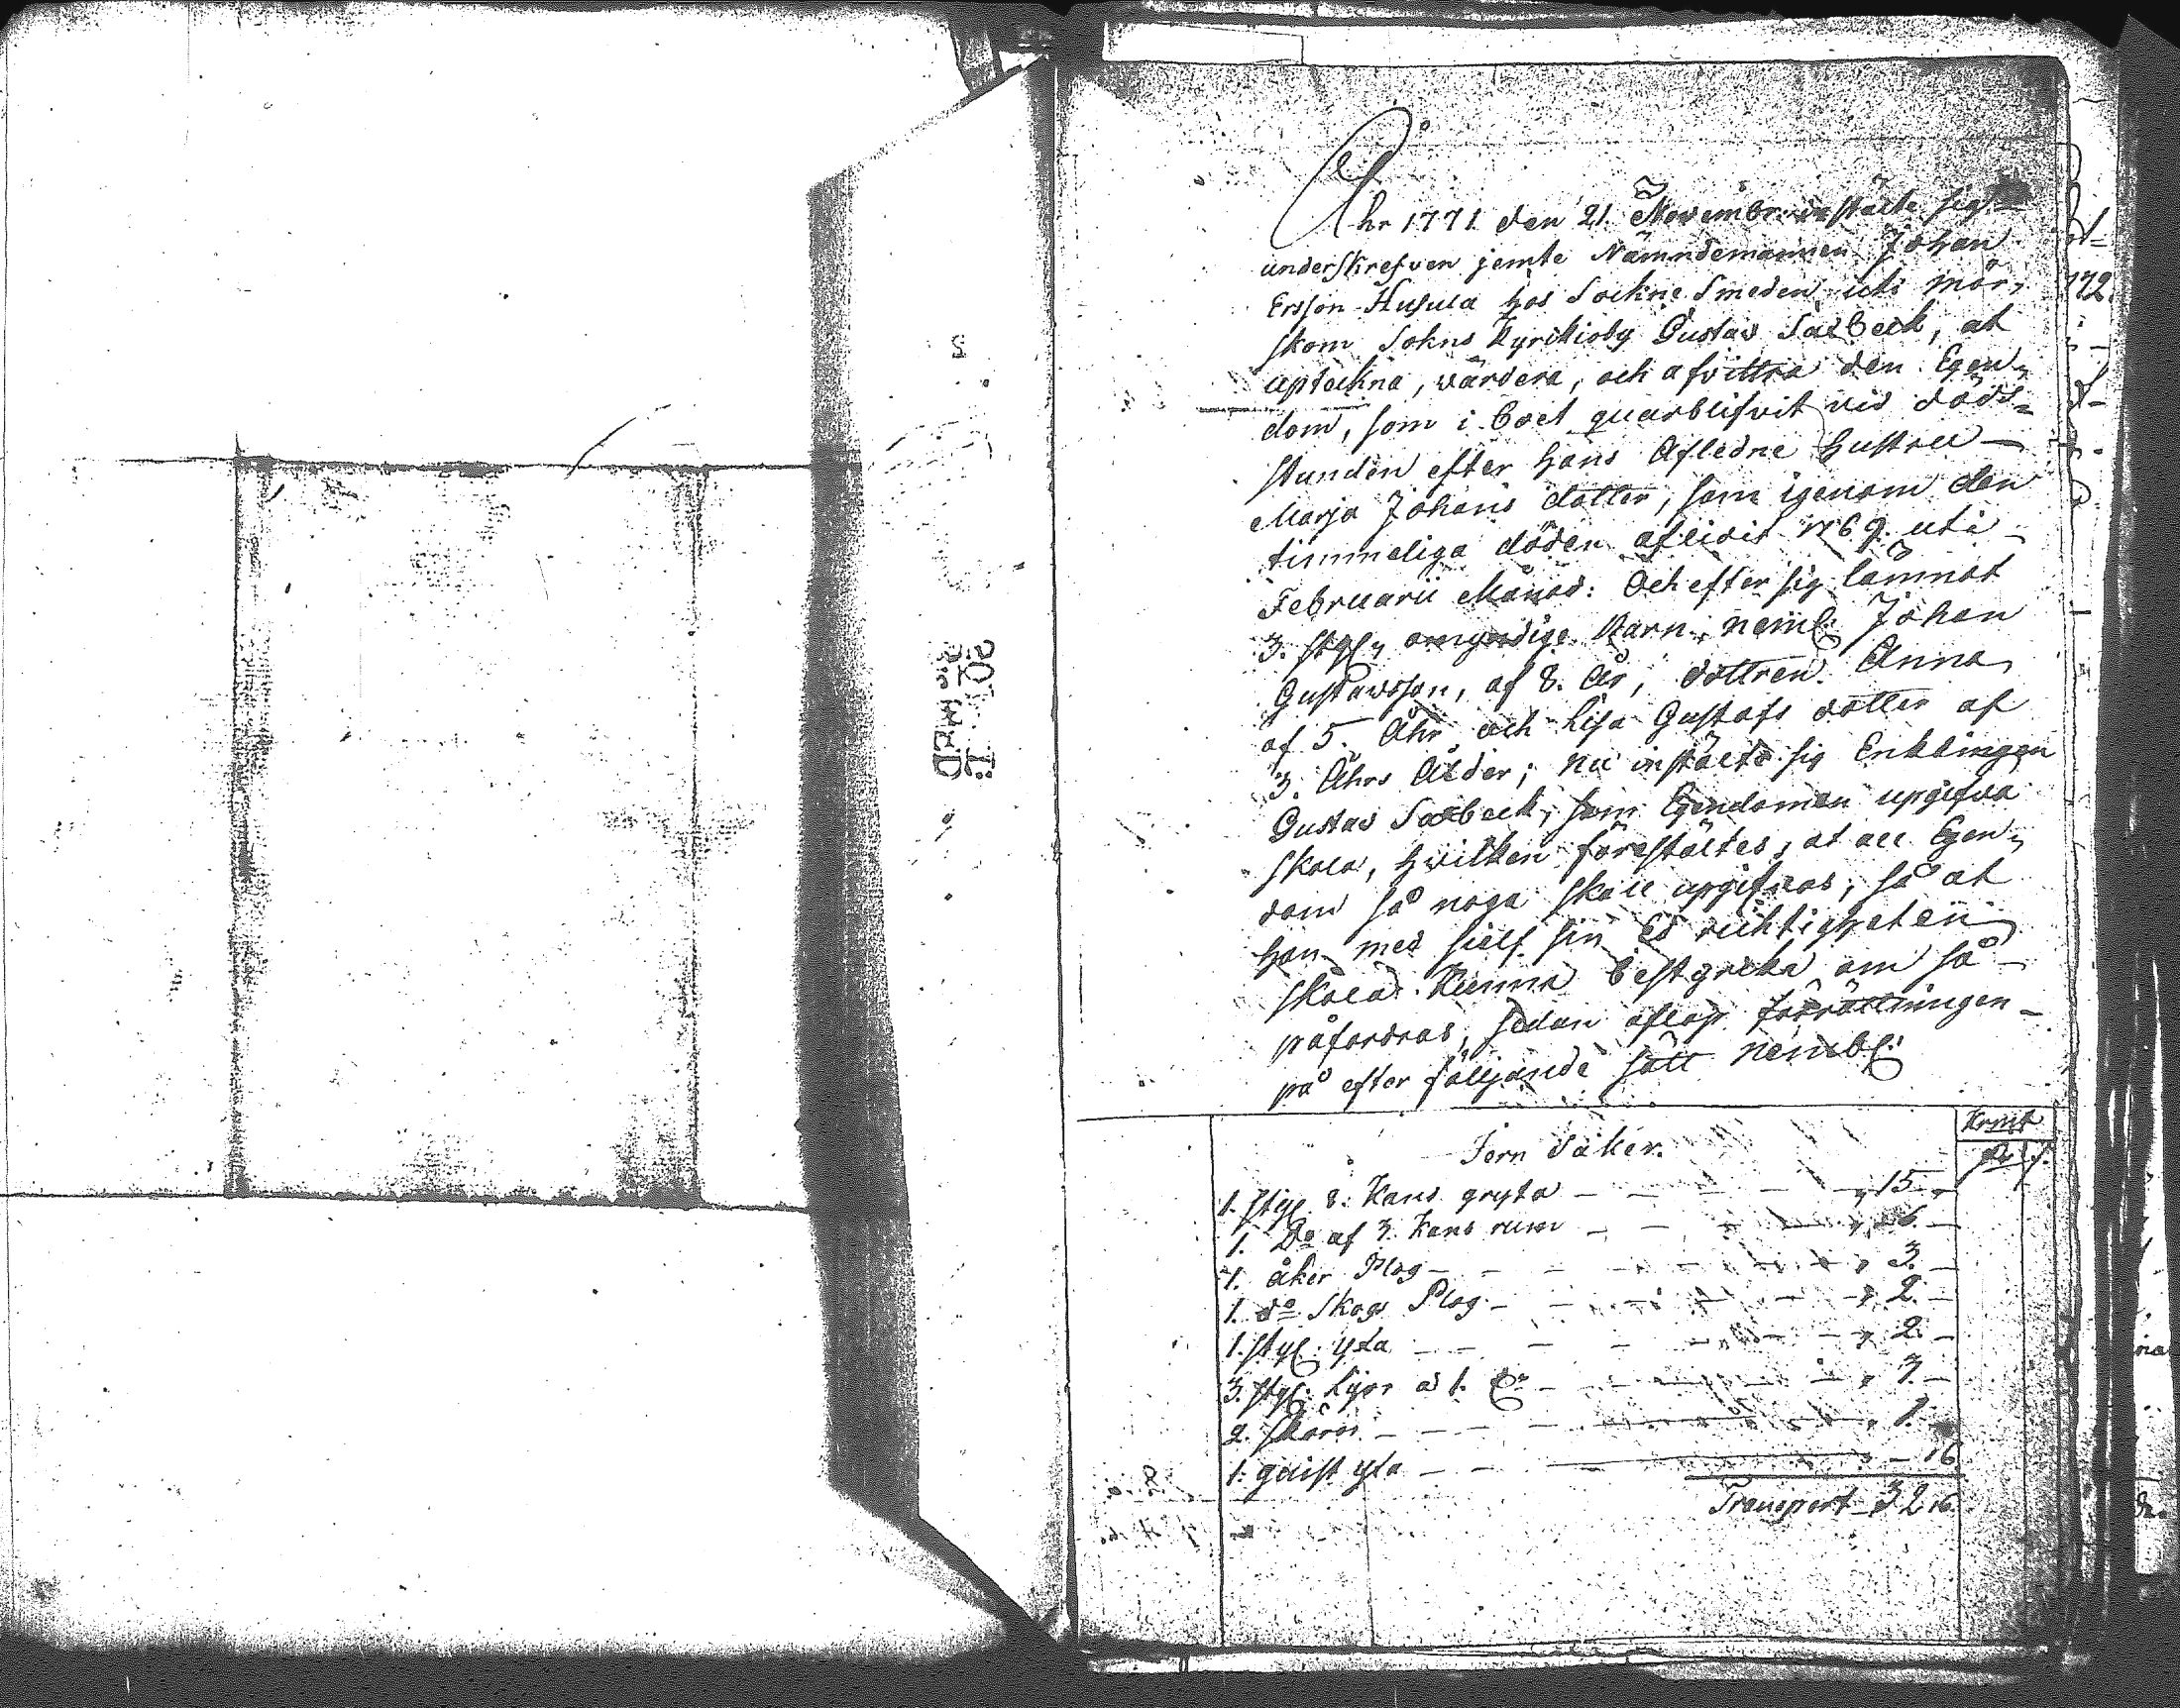 Åhr 1771 den 21 Novembr. instälte sig
underskrefven jemte Nämndemannen Johan
Ersson Husula hos Sockne Smeden uti Mör,
skom Sokns Kyrckioby Gustav Saxbeck, at
uptekna, värdera, och afvittra den Egen,
dom, som i boet quarblifvit vid döds=
stunden efter hans Afledne hustru
Marja Johans dotter, som igenom den
timmeliga döden aflidit 1769 uti
Februarii Månad: Och efter sig lämnat
3. st. omyndige Barn, neml: Johan
Gustavsson, af 8. År, dottren Anna
af 5. Åhr och Lisa Gustafs dotter af
3. Åhrs Ålder; nu instälte sig Enklingen
Gustav Saxbeck, som Egendomen upgifva
skola, hvilken förestältes, at all Egen,
dom så noga skall upgifvas, så at
han med sielf sin Ed richtigheten
skola kunna bestyrcka om så
påfordras, sedan aflop förrättningen
på efter följande sätt nembl:
Krmt
Jern Saker.
1. st. 8. Kans gryta 15.
1. Do af 3. Kans rum 6.
1. åker Plog 3.
1. do Skogs Plog 2.
1. st. yxa 2.
3. st. Lijor a 1. 3.
2. skäror 1.
1. yxa 16
Transport 32 16